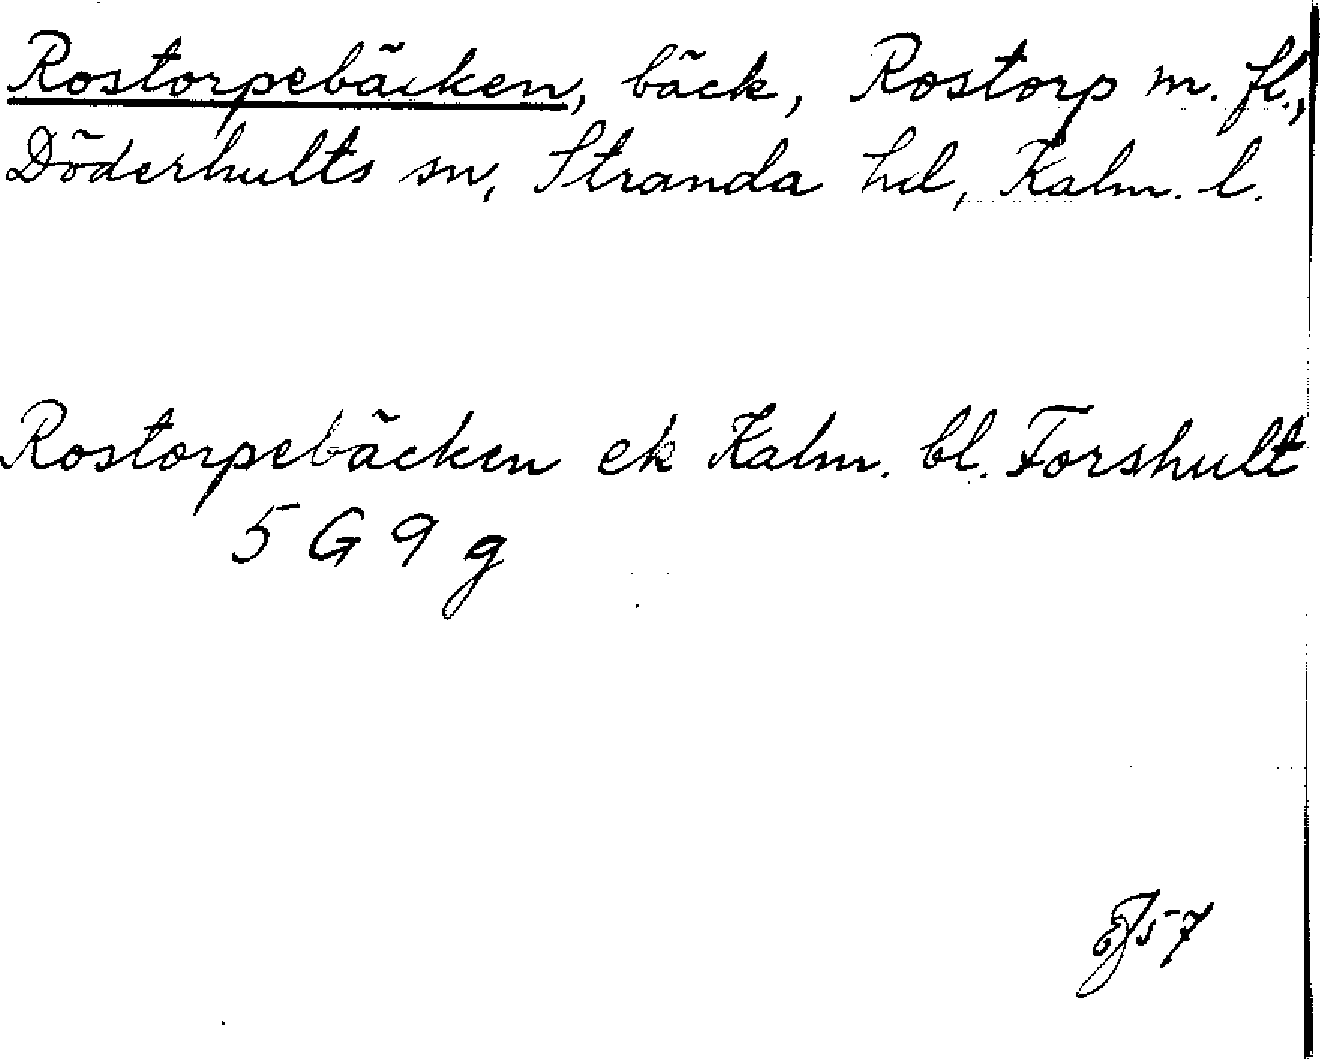 Rostorpebäcken, bäck, Rostorp m. fl.,
Döderhults sn, Stranda hd, Kalm. l.
Rostorpebäcken ek Kalm. bl. Forshult
5 G 9 g